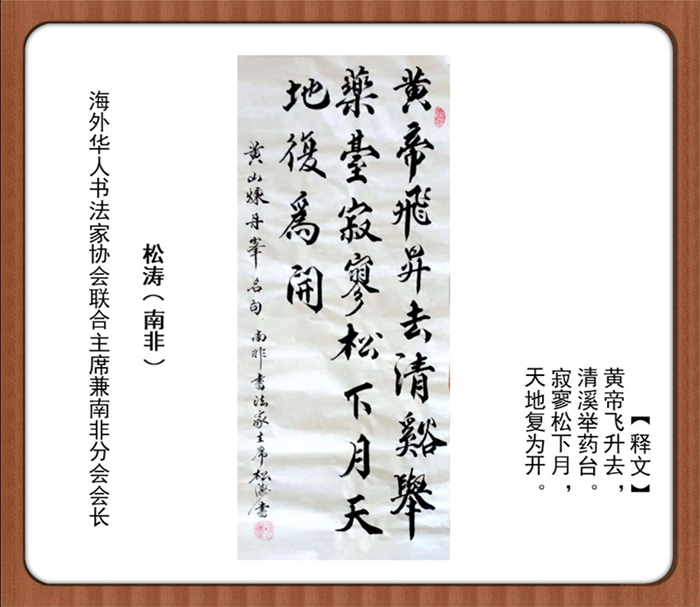 【释文】
黄帝飞升去，
清溪举药台。
寂寥松下月，
天地复为开。
黄帝飛昇去清谿舉
藥臺寂寥松下月天
地復爲開
黄山煉丹峯名句 南非書法家主席松濤書
松涛（南非）
海外华人书法家协会联合主席兼南非分会会长